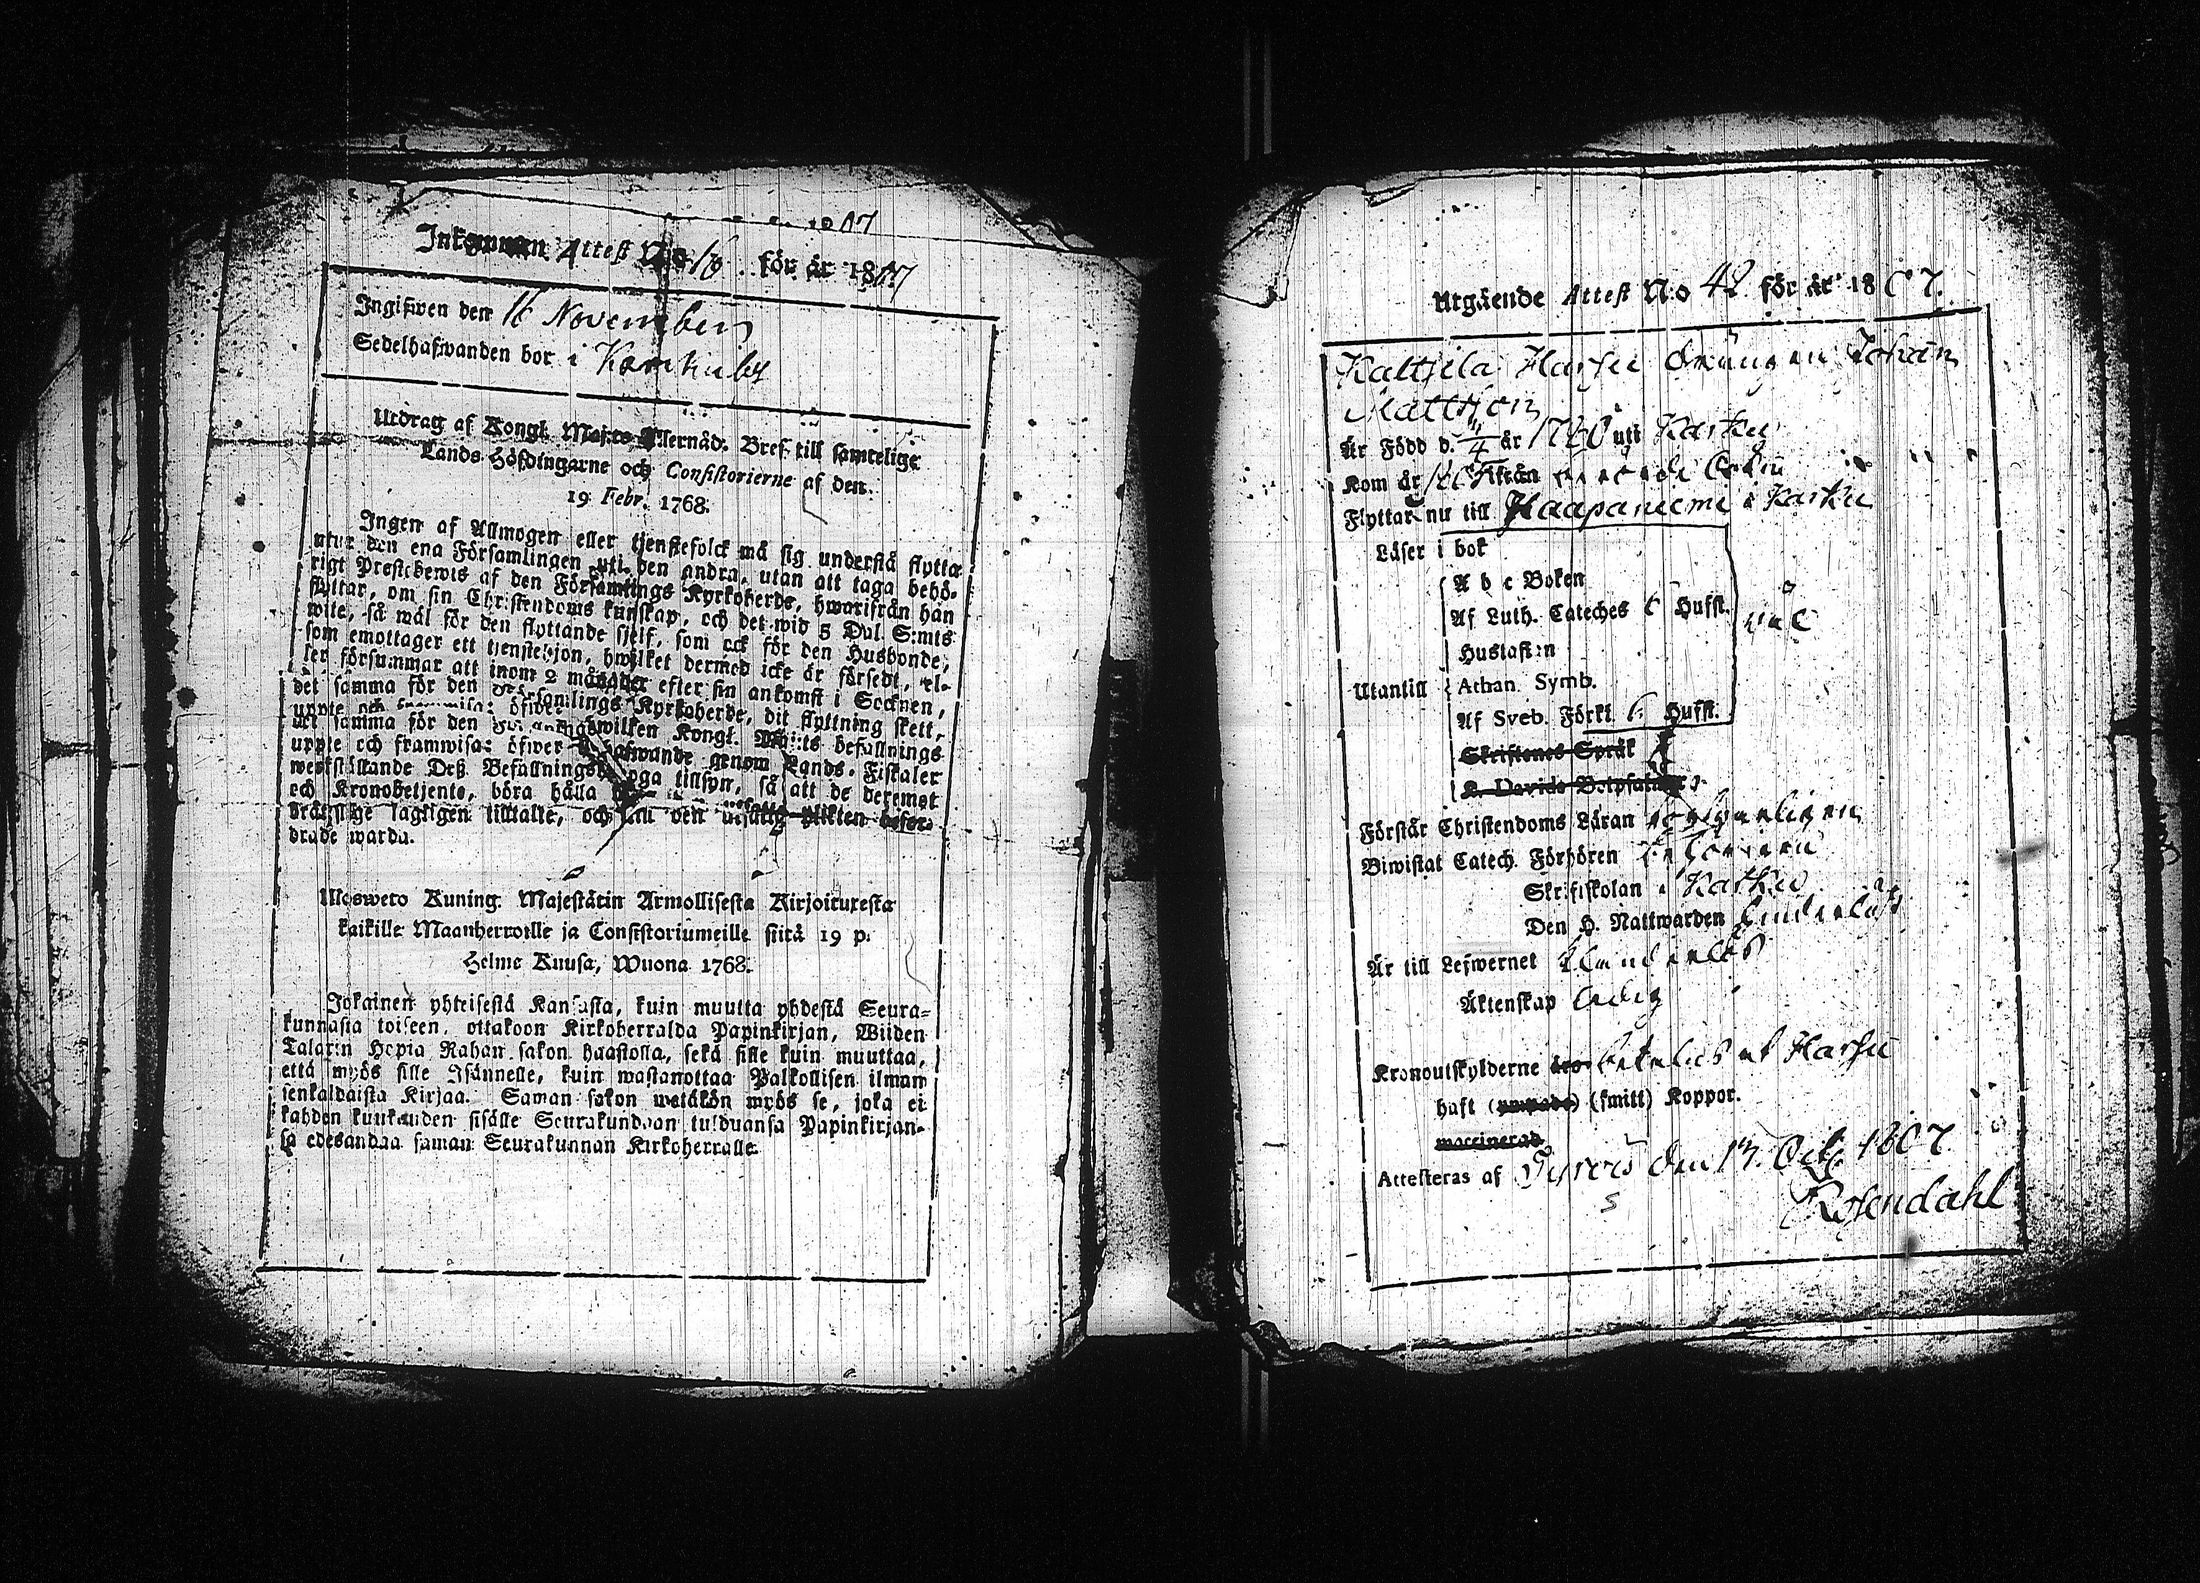 Inkommen Attest No 16 för år 1807
Ingifwen den 16 November
Sedelhafwanden bor i Karkuby
Utdrag af Kongl. Maj:ts Allernåd. Bref till samtelige
Lands-Höfdingarne och Consistorierne af den
19 Febr. 1768.
Ingen af Allmogen eller tjenstefolck må sig understå flytta
utur den ena Församlingen uti den andra, utan att taga behö-
rigt Prestebewis af den Församlings Kyrkoherde, hwarifrån han
flyttar, om sin Christendoms kunskap, och det wid 5 Dal. S:mts
wite, så wäl för den flyttande sjelf, som ock för den Husbonde,
som emottager ett tjenstehjon, hwilket dermed icke är försedt, el-
ler försummar att inom 2 månader efter sin ankomst i Socknen,
det samma för den Församlings Kyrkoherde, dit flyttning skett,
uppte och framwisa: öfwer hwilken Kongl. Maj:ts befallnings
werkställande Deß Befallningshafwande genom Lands-Fiskaler
och Kronobetjente, böra hålla noga tillsyn, så att de deremot
brätslige lagligen tilltalte, och till den utsatte plikten befor-
drade warda.
Uloswero Kuning. Majestätin Armollisesta Kirjoituxesta
kaikille Maanherroille ja Consistoriumeille siitä 19 p.
Helme Kuusa, Wuona 1768.
Jokainen yhteisestä Kansasta, kuin muutta yhdestä Seura-
kunnasta toiseen, ottakoon Kirkoherralda Papinkirjan, Wiiden
Talarin Hopia Rahan sakon haastolla, sekä sille kuin muuttaa,
että myös sille Isännelle, kuin wastanottaa Palkollisen ilman
senkaldaista Kirjaa. Saman sakon wetäkön myös se, joka ei
kahden kuukauden sisälle Seurakundaan tulduansa Papinkirjan-
sa edesandaa saman Seurakunnan Kirkoherralle.
Utgående Attest No 42 för år 1807.
Kaltsila Harju drängen Johan
Mattsson
Är Född d. 4/4 år 1780 uti Karku
Kom år ifrån
Flyttar nu till Haapaniemi i Karku
Läser i bok
A b c Boken
Af Luth. Cateches 6 Hufst.
väl
Hustaflan
Utantill Athan. Symb.
Af Sveb. Förkl. 6 Hufst.
Skriftenes Språk
K. Davids Botpsalmer
Förstår Christendoms Läran
Biwistat Catech. Förhören
Skriftskolan i Karku
Den H. Nattwarden
Är till Lefwernet klanderlös
Äktenskap ledig
Kronoutskylderne äro betalas af Harju
haft (ympade) (smitt) Koppor.
vaccinerad
Attesteras af Tyrvis den 17. Oct. 1807
Rosendahl